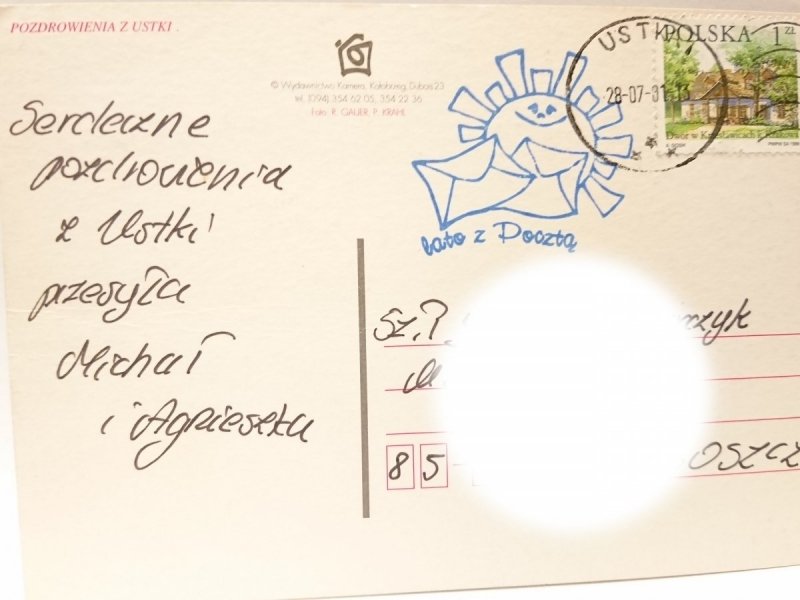 POZDROWIENIA Z USTKI.
© Wydawnictwo Kamera, Kołobrzeg, Dubois 23
tel. (094) 354 62 05, 354 22 36
Foto: R. GAUER, P. KRAHL
Serdeczne
pozdrowienia
z Ustki
przesyła
Michał
i Agnieszka
lato z Pocztą
USTKA
28-07-01-13
POLSKA 1 ZŁ
Sz.P.
85-